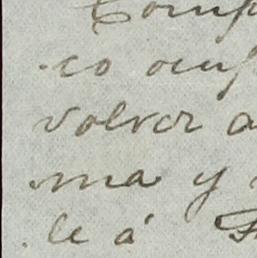 Comp
co ocup
volver a
ma y
le á